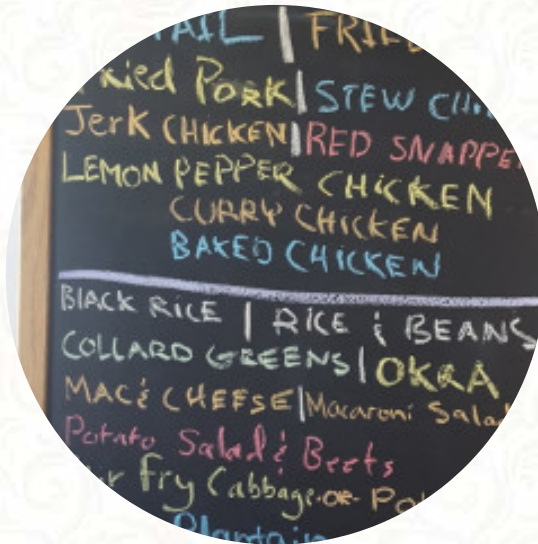 TAIL | FRIED
Fried PORK | STEW
JerK CHICKEN | RED SNAPPE
LEMON PEPPER CHICKEN
CURRY CHICKEN
BAKED CHICKEN
BLACK RICE | RICE & BEANS
COLLARD GREENS | OKRA
MAC & CHEESE | Macaroni Salad
Potato Salad & Beets
Fry Cabbage-OR-
Plantain